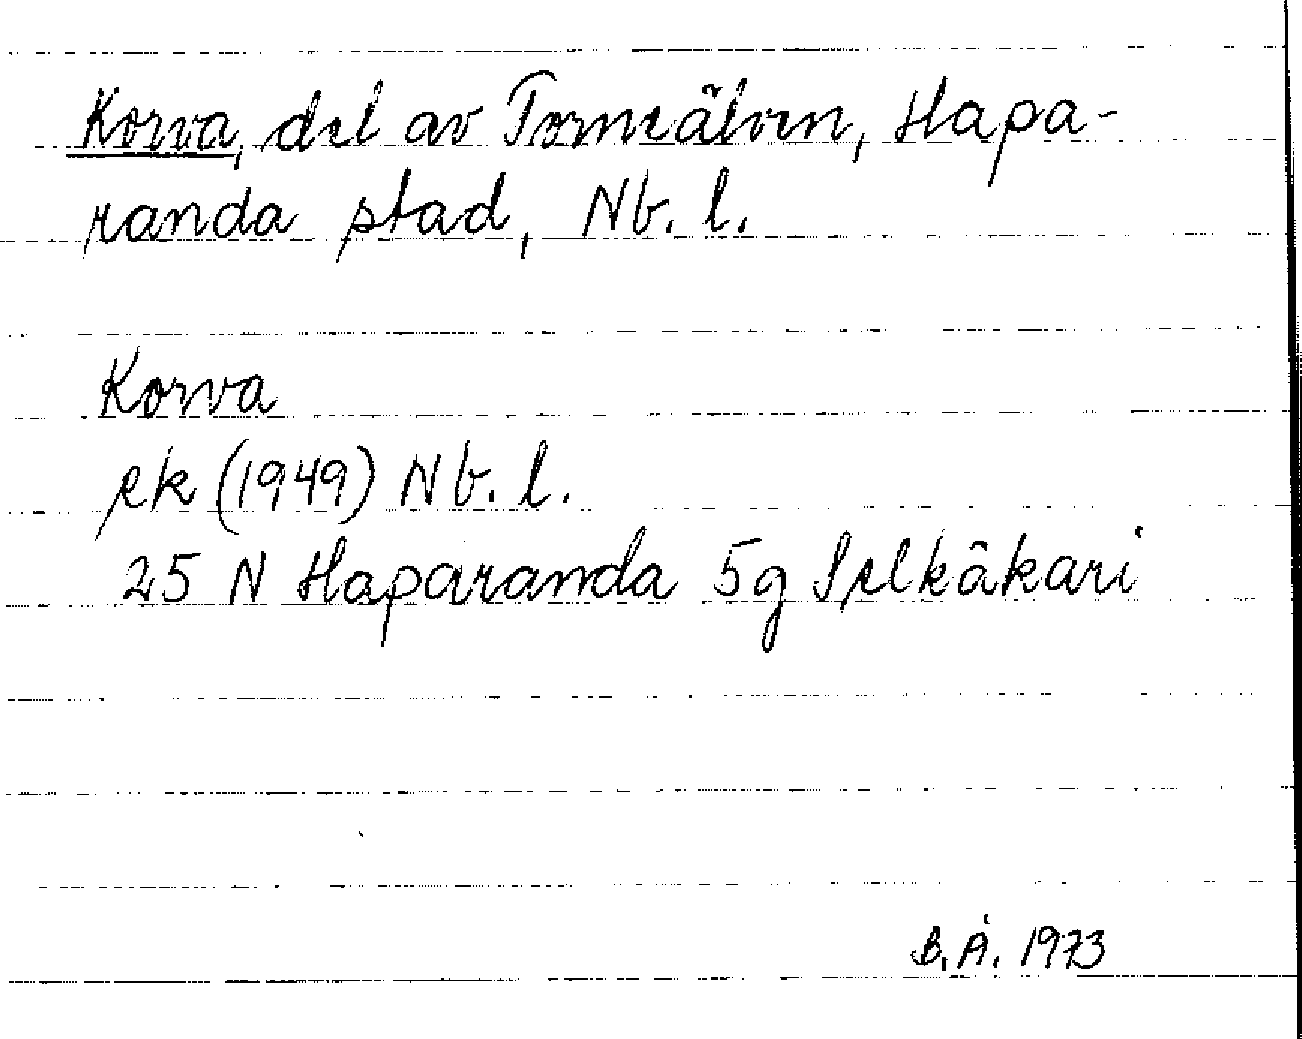 Korva, del av Torneälven, Hapa-
randa stad, Nb. l.
Korva
ek (1949) Nb. l.
25 N Haparanda 5g Selkäkari
B. Å. 1973